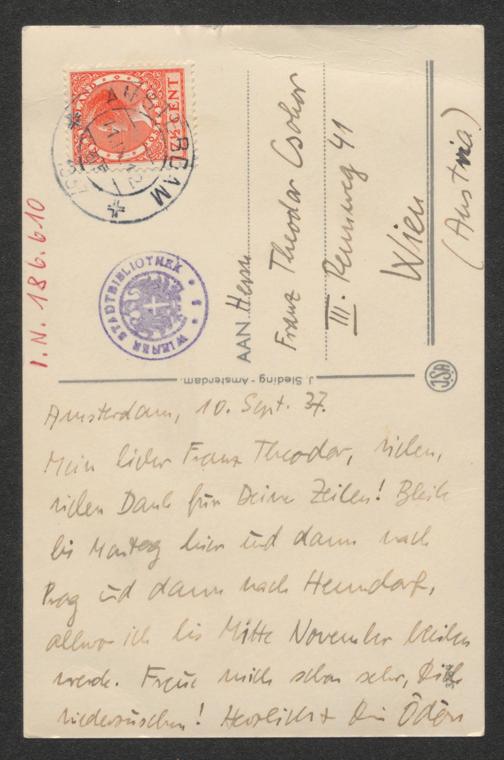 NEDERLAND
½ CENT
AMSTERDAM
WIENER STADTBIBLIOTHEK
I.N. 186.610
AAN Herrn
Franz Theodor Csokor
III. Rennweg 41
Wien
(Austria)
J. Sleding - Amsterdam.
JSA
Amsterdam, 10. Sept. 37.
Mein lieber Franz Theodor, vielen,
vielen Dank für Deine Zeilen! Bleibe
bis Montag hier und dann nach
Prag und dann nach Henndorf,
allwo ich bis Mitte November bleiben
werde. Freue mich schon sehr, Dich
wiederzusehen! Herzlichst Dein Ödön